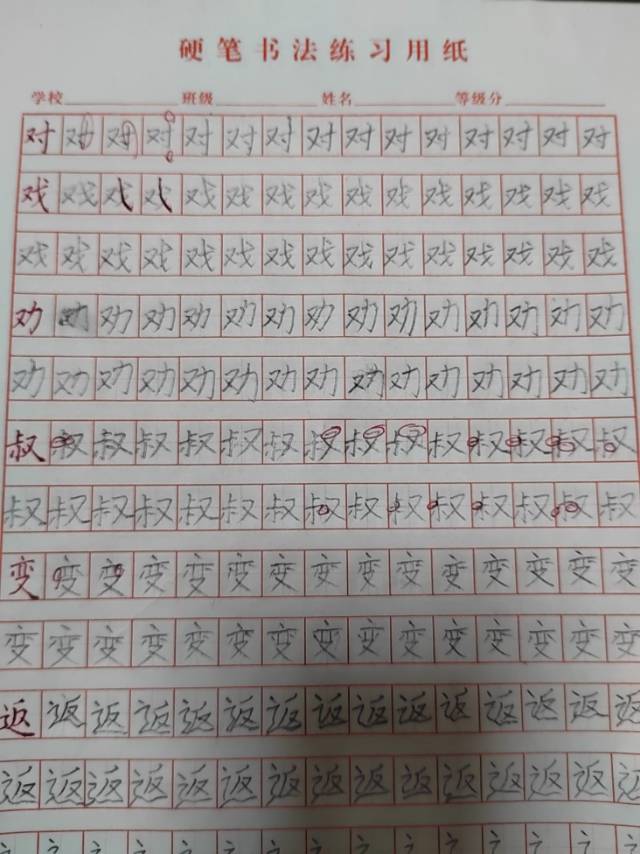 硬笔书法练习用纸
学校 班级 姓名 等级分
对对对对对对对对对对对对对对对
戏戏戏戏戏戏戏戏戏戏戏戏戏戏戏
戏戏戏戏戏戏戏戏戏戏戏戏戏戏戏
劝劝劝劝劝劝劝劝劝劝劝劝劝劝劝
劝劝劝劝劝劝劝劝劝劝劝劝劝劝劝
叔叔叔叔叔叔叔叔叔叔叔叔叔叔叔
叔叔叔叔叔叔叔叔叔叔叔叔叔叔叔
变变变变变变变变变变变变变变变
变变变变变变变变变变变变变变变
返返返返返返返返返返返返返返返
返返返返返返返返返返返返返返返